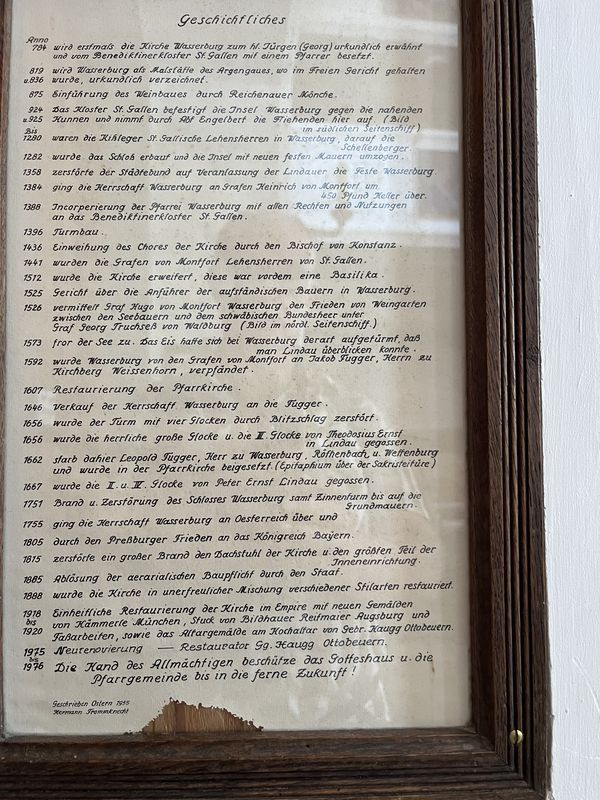 Geschichtliches
Anno
784 wird erstmals die Kirche Wasserburg zum hl. Jürgen (Georg) urkundlich erwähnt
und vom Benediktinerkloster St. Gallen mit einem Pfarrer besetzt.
819 wird Wasserburg als Malstätte des Argengaues, wo im Freien Gericht gehalten
u. 836 wurde, urkundlich verzeichnet.
875 Einführung des Weinbaues durch Reichenauer Mönche.
924 Das Kloster St. Gallen befestigt die Insel Wasserburg gegen die nahenden
u. 925 Hunnen und nimmt durch Abt Engelbert die Fliehenden hier auf. (Bild
im südlichen Seitenschiff)
Bis
1280 waren die Kihleger St. Gallische Lehensherren in Wasserburg, darauf die
Schellenberger.
1282 wurde das Schloß erbaut und die Insel mit neuen festen Mauern umzogen.
1358 zerstörte der Städtebund auf Veranlassung der Lindauer die Feste Wasserburg.
1384 ging die Herrschaft Wasserburg an Grafen Heinrich von Montfort um
450 Pfund Heller über.
1388 Incorperierung der Pfarrei Wasserburg mit allen Rechten und Nutzungen
an das Benediktinerkloster St. Gallen.
1396 Turmbau.
1436 Einweihung des Chores der Kirche durch den Bischof von Konstanz.
1441 wurden die Grafen von Montfort Lehensherren von St. Gallen.
1512 wurde die Kirche erweitert, diese war vordem eine Basilika.
1525 Gericht über die Anführer der aufständischen Bauern in Wasserburg.
1526 vermittelt Graf Hugo von Montfort Wasserburg den Frieden von Weingarten
zwischen den Seebauern und dem schwäbischen Bundesheer unter
Graf Georg Truchseß von Waldburg (Bild im nördl. Seitenschiff.)
1573 fror der See zu. Das Eis hatte sich bei Wasserburg derart aufgetürmt, daß
man Lindau überblicken konnte.
1592 wurde Wasserburg von den Grafen von Montfort an Jakob Fugger, Herrn zu
Kirchberg Weissenhorn, verpfändet.
1607 Restaurierung der Pfarrkirche.
1646 Verkauf der Herrschaft Wasserburg an die Fugger.
1656 wurde der Turm mit vier Glocken durch Blitzschlag zerstört.
1656 wurde die herrliche große Glocke u. die III. Glocke von Theodosius Ernst
in Lindau gegossen.
1662 starb dahier Leopold Fugger, Herr zu Wasserburg, Röthenbach u. Wettenburg
und wurde in der Pfarrkirche beigesetzt. (Epitaphium über der Sakristeitüre)
1667 wurde die II. u. IV. Glocke von Peter Ernst Lindau gegossen.
1751 Brand u. Zerstörung des Schlosses Wasserburg samt Zinnenturm bis auf die
Grundmauern.
1755 ging die Herrschaft Wasserburg an Oesterreich über und
1805 durch den Preßburger Frieden an das Königreich Bayern.
1815 zerstörte ein großer Brand den Dachstuhl der Kirche u. den größten Teil der
Inneneinrichtung.
1885 Ablösung der aerarialischen Baupflicht durch den Staat.
1888 wurde die Kirche in unerfreulicher Mischung verschiedener Stilarten restauriert.
1918 Einheitliche Restaurierung der Kirche im Empire mit neuen Gemälden
bis von Hämmerle München, Stuck von Bildhauer Reitmaier Augsburg und
1920 Faßarbeiten, sowie das Altargemälde am Hochaltar von Gebr. Haugg Ottobeuern.
1975 Neurenovierung — Restaurator Gg. Haugg Ottobeuern.
bis
1976 Die Hand des Allmächtigen beschütze das Gotteshaus u. die
Pfarrgemeinde bis in die ferne Zukunft!
Geschrieben Ostern 1955
Hermann Trommknecht